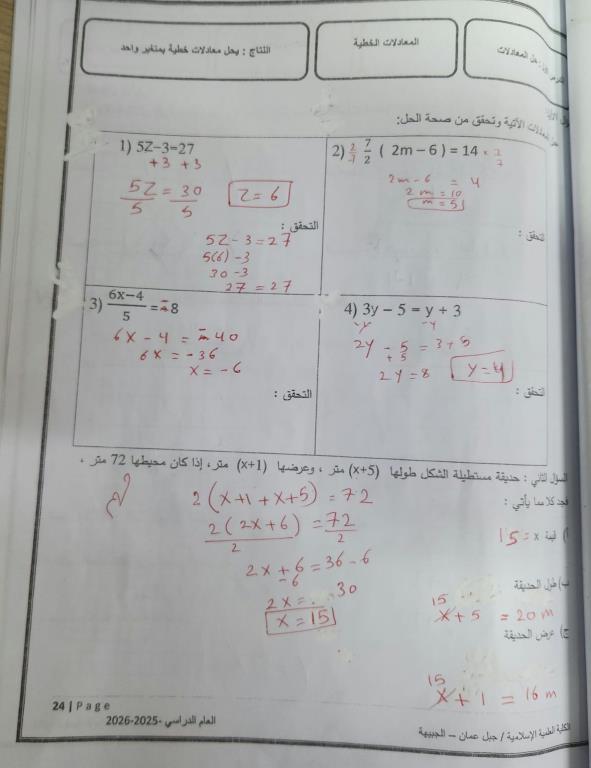 حل المعادلات
المعادلات الخطية
النتاج : يحل معادلات خطية بمتغير واحد
المعادلات الآتية وتحقق من صحة الحل:
1) 5Z−3=27
+3 +3
5Z = 30
5 5
Z = 6
التحقق :
5Z - 3 = 27
5(6) - 3
30 - 3
27 = 27
2) 2/7 7/2 ( 2m − 6 ) = 14 × 2/7
2m - 6 = 4
2m = 10
m = 5
التحقق :
3) (6x−4)/5 = −8
6x - 4 = - 40
6x = - 36
x = - 6
التحقق :
4) 3y − 5 = y + 3
-y -y
2y - 5 = 3 + 5
+ 5
2y = 8
y = 4
التحقق :
السؤال الثاني : حديقة مستطيلة الشكل طولها (x+5) متر ، وعرضها (x+1) متر، إذا كان محيطها 72 متر ،
فجد كلا مما يأتي :
2 (x+1 + x+5) = 72
2 (2x+6) = 72
2 2
2x + 6 = 36 - 6
- 6
2x = 30
x = 15
أ) قيمة x = 15
ب) طول الحديقة
15
x + 5 = 20 m
ج) عرض الحديقة
15
x + 1 = 16 m
24 | Page
العام الدراسي -2025-2026
الكلية العلمية الإسلامية / جبل عمان – الجبيهة